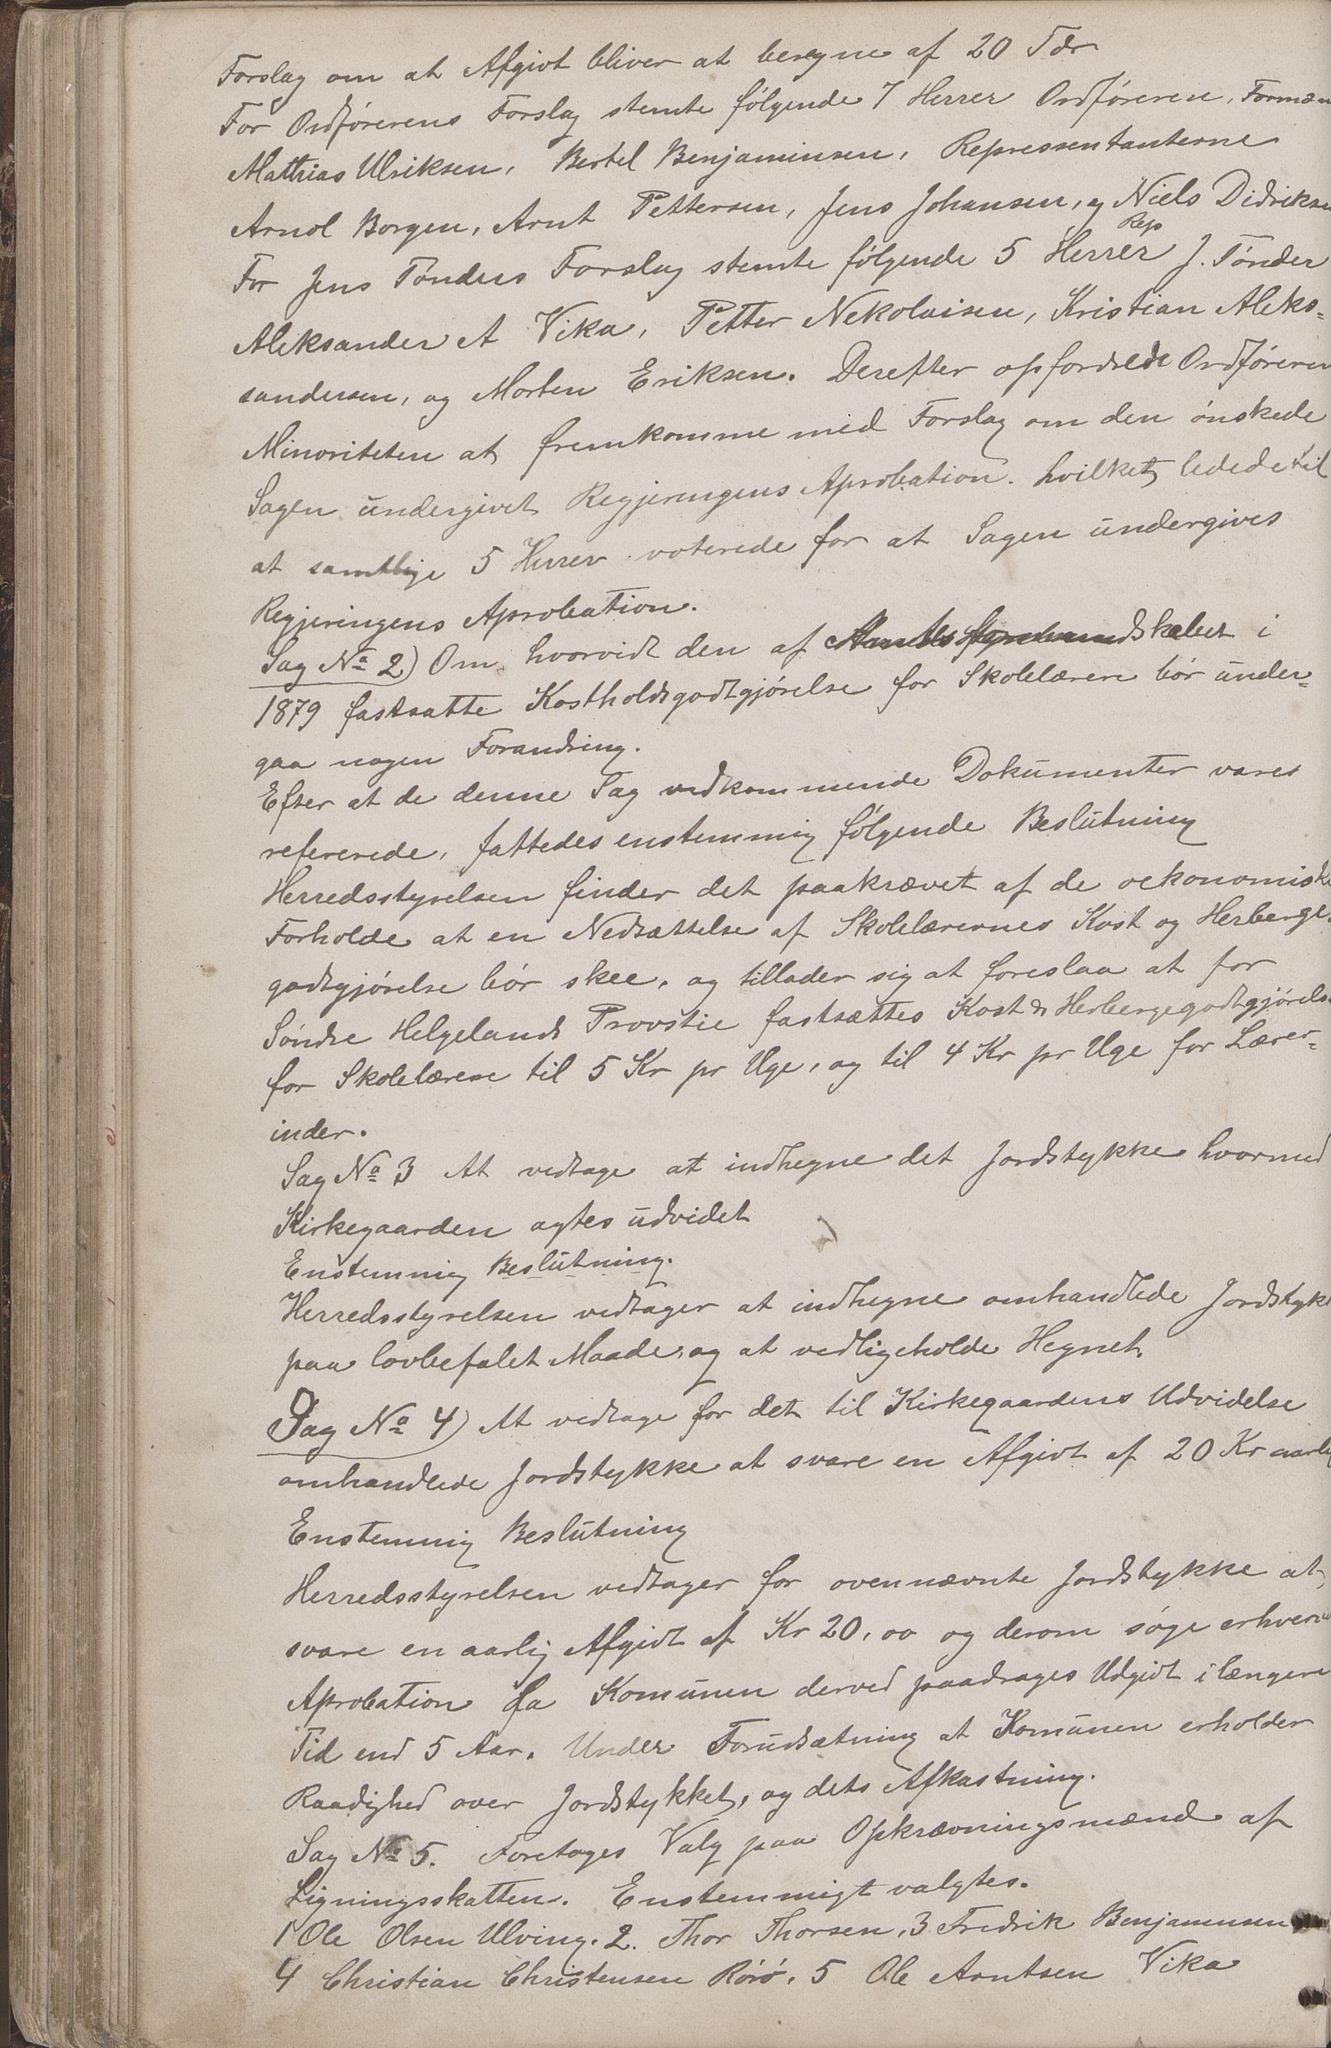 Forslag om at Afgivt bliver at beregne af 20 Tdr
For Ordførerens Forslag stemte følgende 7 Herrer Ordføreren, Formæn
Mathias Ulriksen, Bertel Benjaminsen, Repressentanterne
Arnol Borgen, Arnt Pettersen, Jens Johansen, og Niels Didriksen
For Jens Tønders Forslag stemte følgende 5 Herrer Rep J. Tønder
Aleksander A Vika, Petter Nekolaisen, Kristian Aleks=
sandersen, og Morten Eriksen. Derefter opfordrede Ordføreren
Minoriteten at fremkomme med Forslag om den ønskede
Sagen undergivet Regjeringens Aprobation. hvilket ledede til
at samtlige 5 Herrer voterede for at Sagen undergives
Regjeringens Aprobation.
Sag No 2) Om hvorvidt den af Amts formandskabet i
1879 fastsatte Kostholdsgodtgjørelse for Skolelærere bør under=
gaa nogen Forandring.
Efter at de denne Sag vedkommende Dokumenter vares
refererede, fattedes enstemmig følgende Beslutning
Herredsstyrelsen finder det paakrævet af de oekonomiske
Forholde at en Nedsættelse af Skolelærernes Kost og Herberge=
godtgjørelse bør skee, og tillader sig at foreslaa at for
Søndre Helgelands Provstie fastsættes Kost & Herbergegodtgjørelse
for Skolelærere til 5 Kr pr Uge, og til 4 Kr pr Uge for Lærer=
inder.
Sag No 3 At vedtage at indhegne det Jordstykke hvormed
Kirkegaarden agtes udvidet
Enstemmig Beslutning.
Herredsstyrelsen vedtager at indhegne omhandlede Jordstykke
paa lovbefalet Maade, og at vedligeholde Hegnet.
Sag No 4) At vedtage for det til Kirkegaardens Udvidelse
omhandlede Jordstykke at svare en Afgivt af 20 Kr aarlig
Enstemmig Beslutning
Herredsstyrelsen vedtager for ovennævnte Jordstykke at
svare en aarlig Afgivt af Kr 20,00 og derom søge erhvervet
Aprobation da Komunen derved paadrages Udgivt i længere
Tid end 5 Aar. Under Forudsætning at Komunen erholder
Raadighed over Jordstykket, og dets Afkastning.
Sag No 5. Foretages Valg paa Opkrævningsmænd af
Ligningsskatten. Enstemmigt valgtes.
1 Ole Olsen Ulving. 2. Thor Thorsen, 3 Fredrik Benjaminsen
4 Christian Christensen Rørø, 5 Ole Arntsen Vika